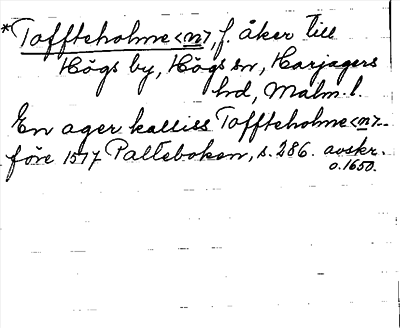 *Toffteholme<n>, f. åker till
Högs by, Högs sn, Harjagers
hd, Malm. l.
En ager kalliss Toffteholme<n>
före 1517 Palteboken, s. 286. avskr.
o. 1650.